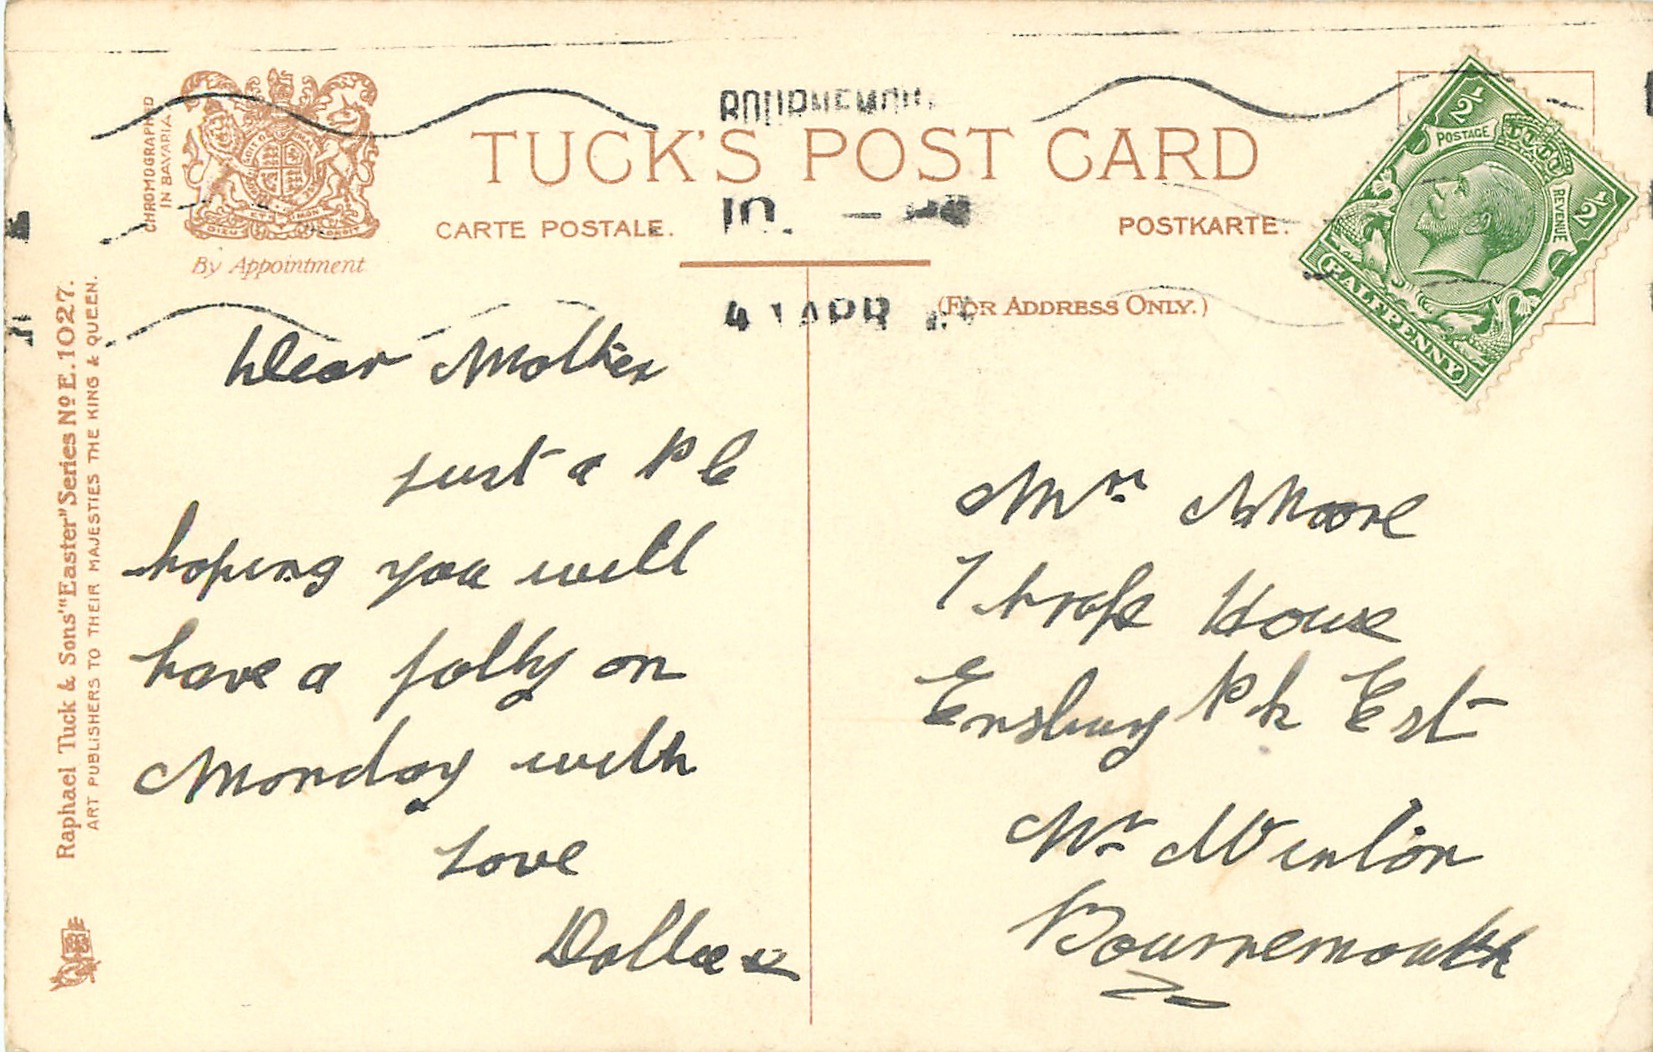 CHROMOGRAPHED
IN BAVARIA
By Appointment
TUCK'S POST CARD
CARTE POSTALE.
POSTKARTE.
(FOR ADDRESS ONLY.)
BOURNEMOU
10.
APR
POSTAGE
REVENUE
½
½
HALFPENNY
Raphael Tuck & Sons' "Easter" Series Nº E. 1027.
ART PUBLISHERS TO THEIR MAJESTIES THE KING & QUEEN.
Dear Mother
just a P C
hoping you will
have a jolly on
Monday with
Love
Dollie
Mrs Moore
House
Ensbury Pk Est
Nr Winton
Bournemouth